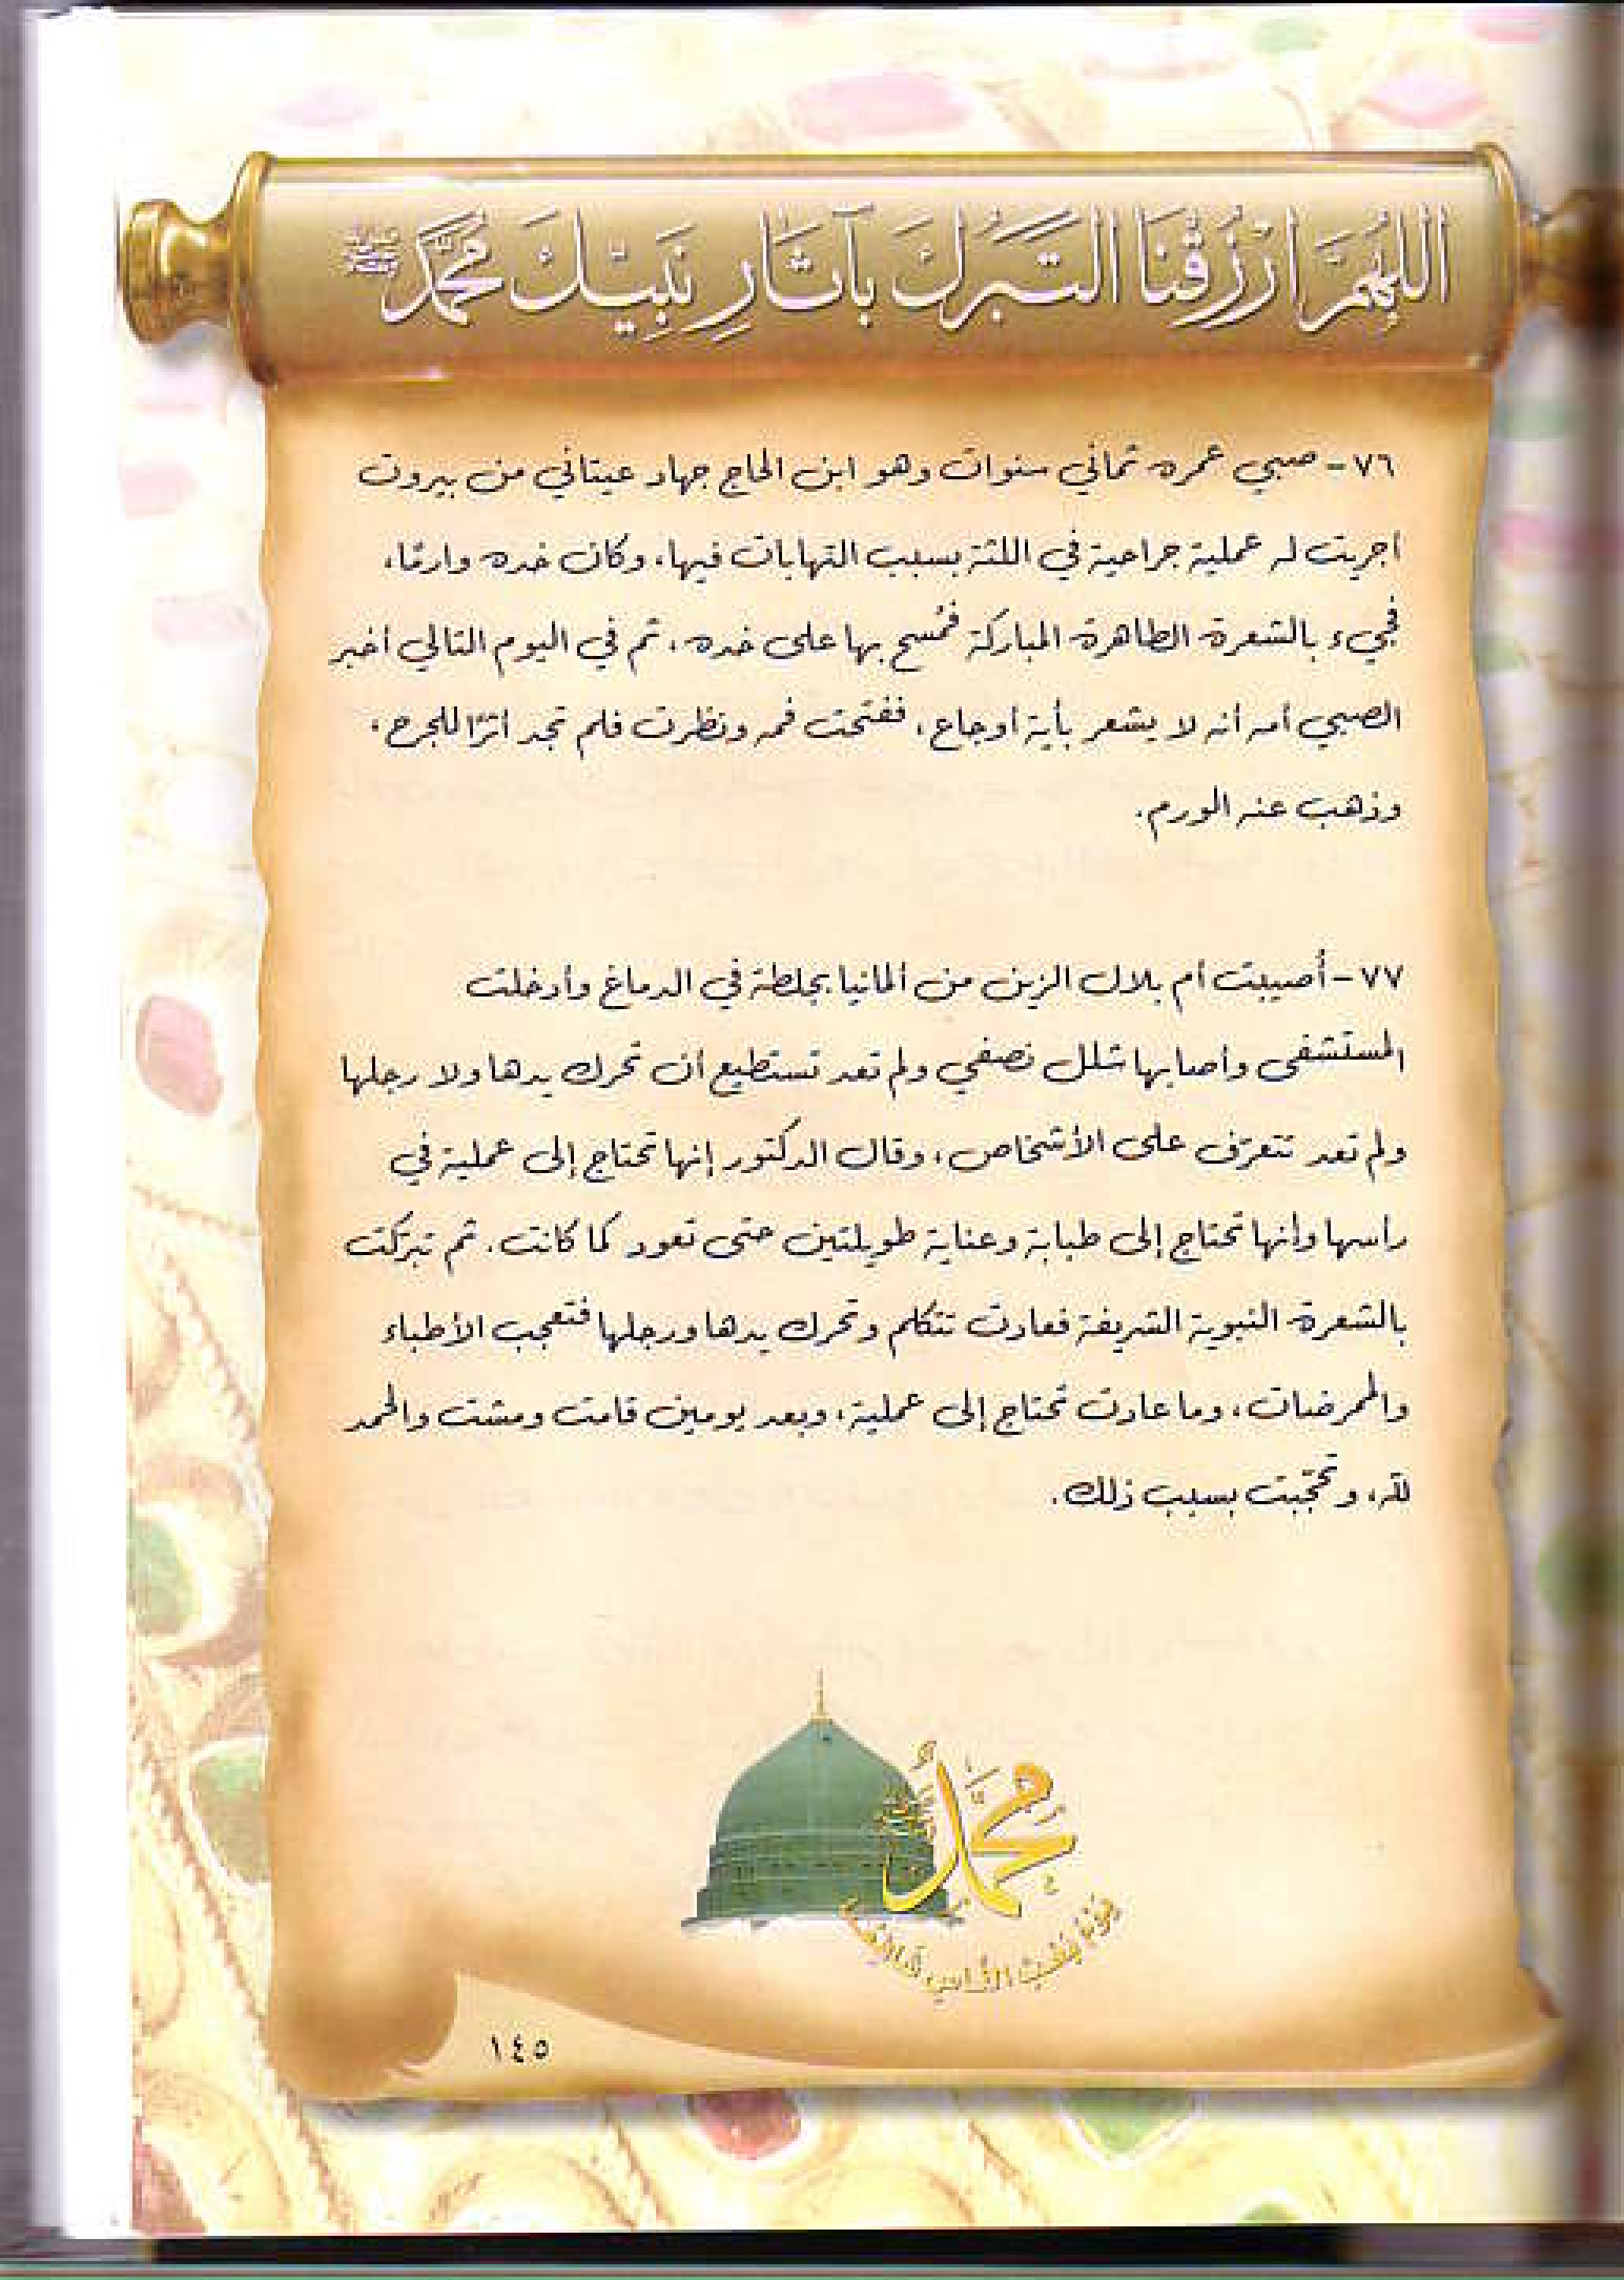 اللهُمَّ ارْزُقْنَا التَّبَرُّكَ بِآثَارِ نَبِيِّكَ مُحَمَّدٍ ﷺ
٧٦- صبي عمره ثماني سنوات وهو ابن الحاج جهاد عيتاني من بيروت
أجريت له عملية جراحية في اللثة بسبب التهابات فيها، وكان خده وارمًا،
فجيء بالشعرة الطاهرة المباركة فمُسح بها على خده، ثم في اليوم التالي أخبر
الصبي أمه أنه لا يشعر بأية أوجاع، ففتحت فمه ونظرت فلم تجد أثرًا للجرح،
وذهب عنه الورم.
٧٧- أُصيبت أم بلال الزين من ألمانيا بجلطة في الدماغ وأدخلت
المستشفى وأصابها شلل نصفي ولم تعد تستطيع أن تحرك يدها ولا رجلها
ولم تعد تتعرّف على الأشخاص، وقال الدكتور إنها تحتاج إلى عملية في
رأسها وأنها تحتاج إلى طبابة وعناية طويلتين حتى تعود كما كانت. ثم تبركت
بالشعرة النبوية الشريفة فعادت تتكلم وتحرك يدها ورجلها فتعجب الأطباء
والممرضات، وما عادت تحتاج إلى عملية، وبعد يومين قامت ومشت والحمد
لله، وتحجّبت بسبب ذلك.
محمد
١٤٥